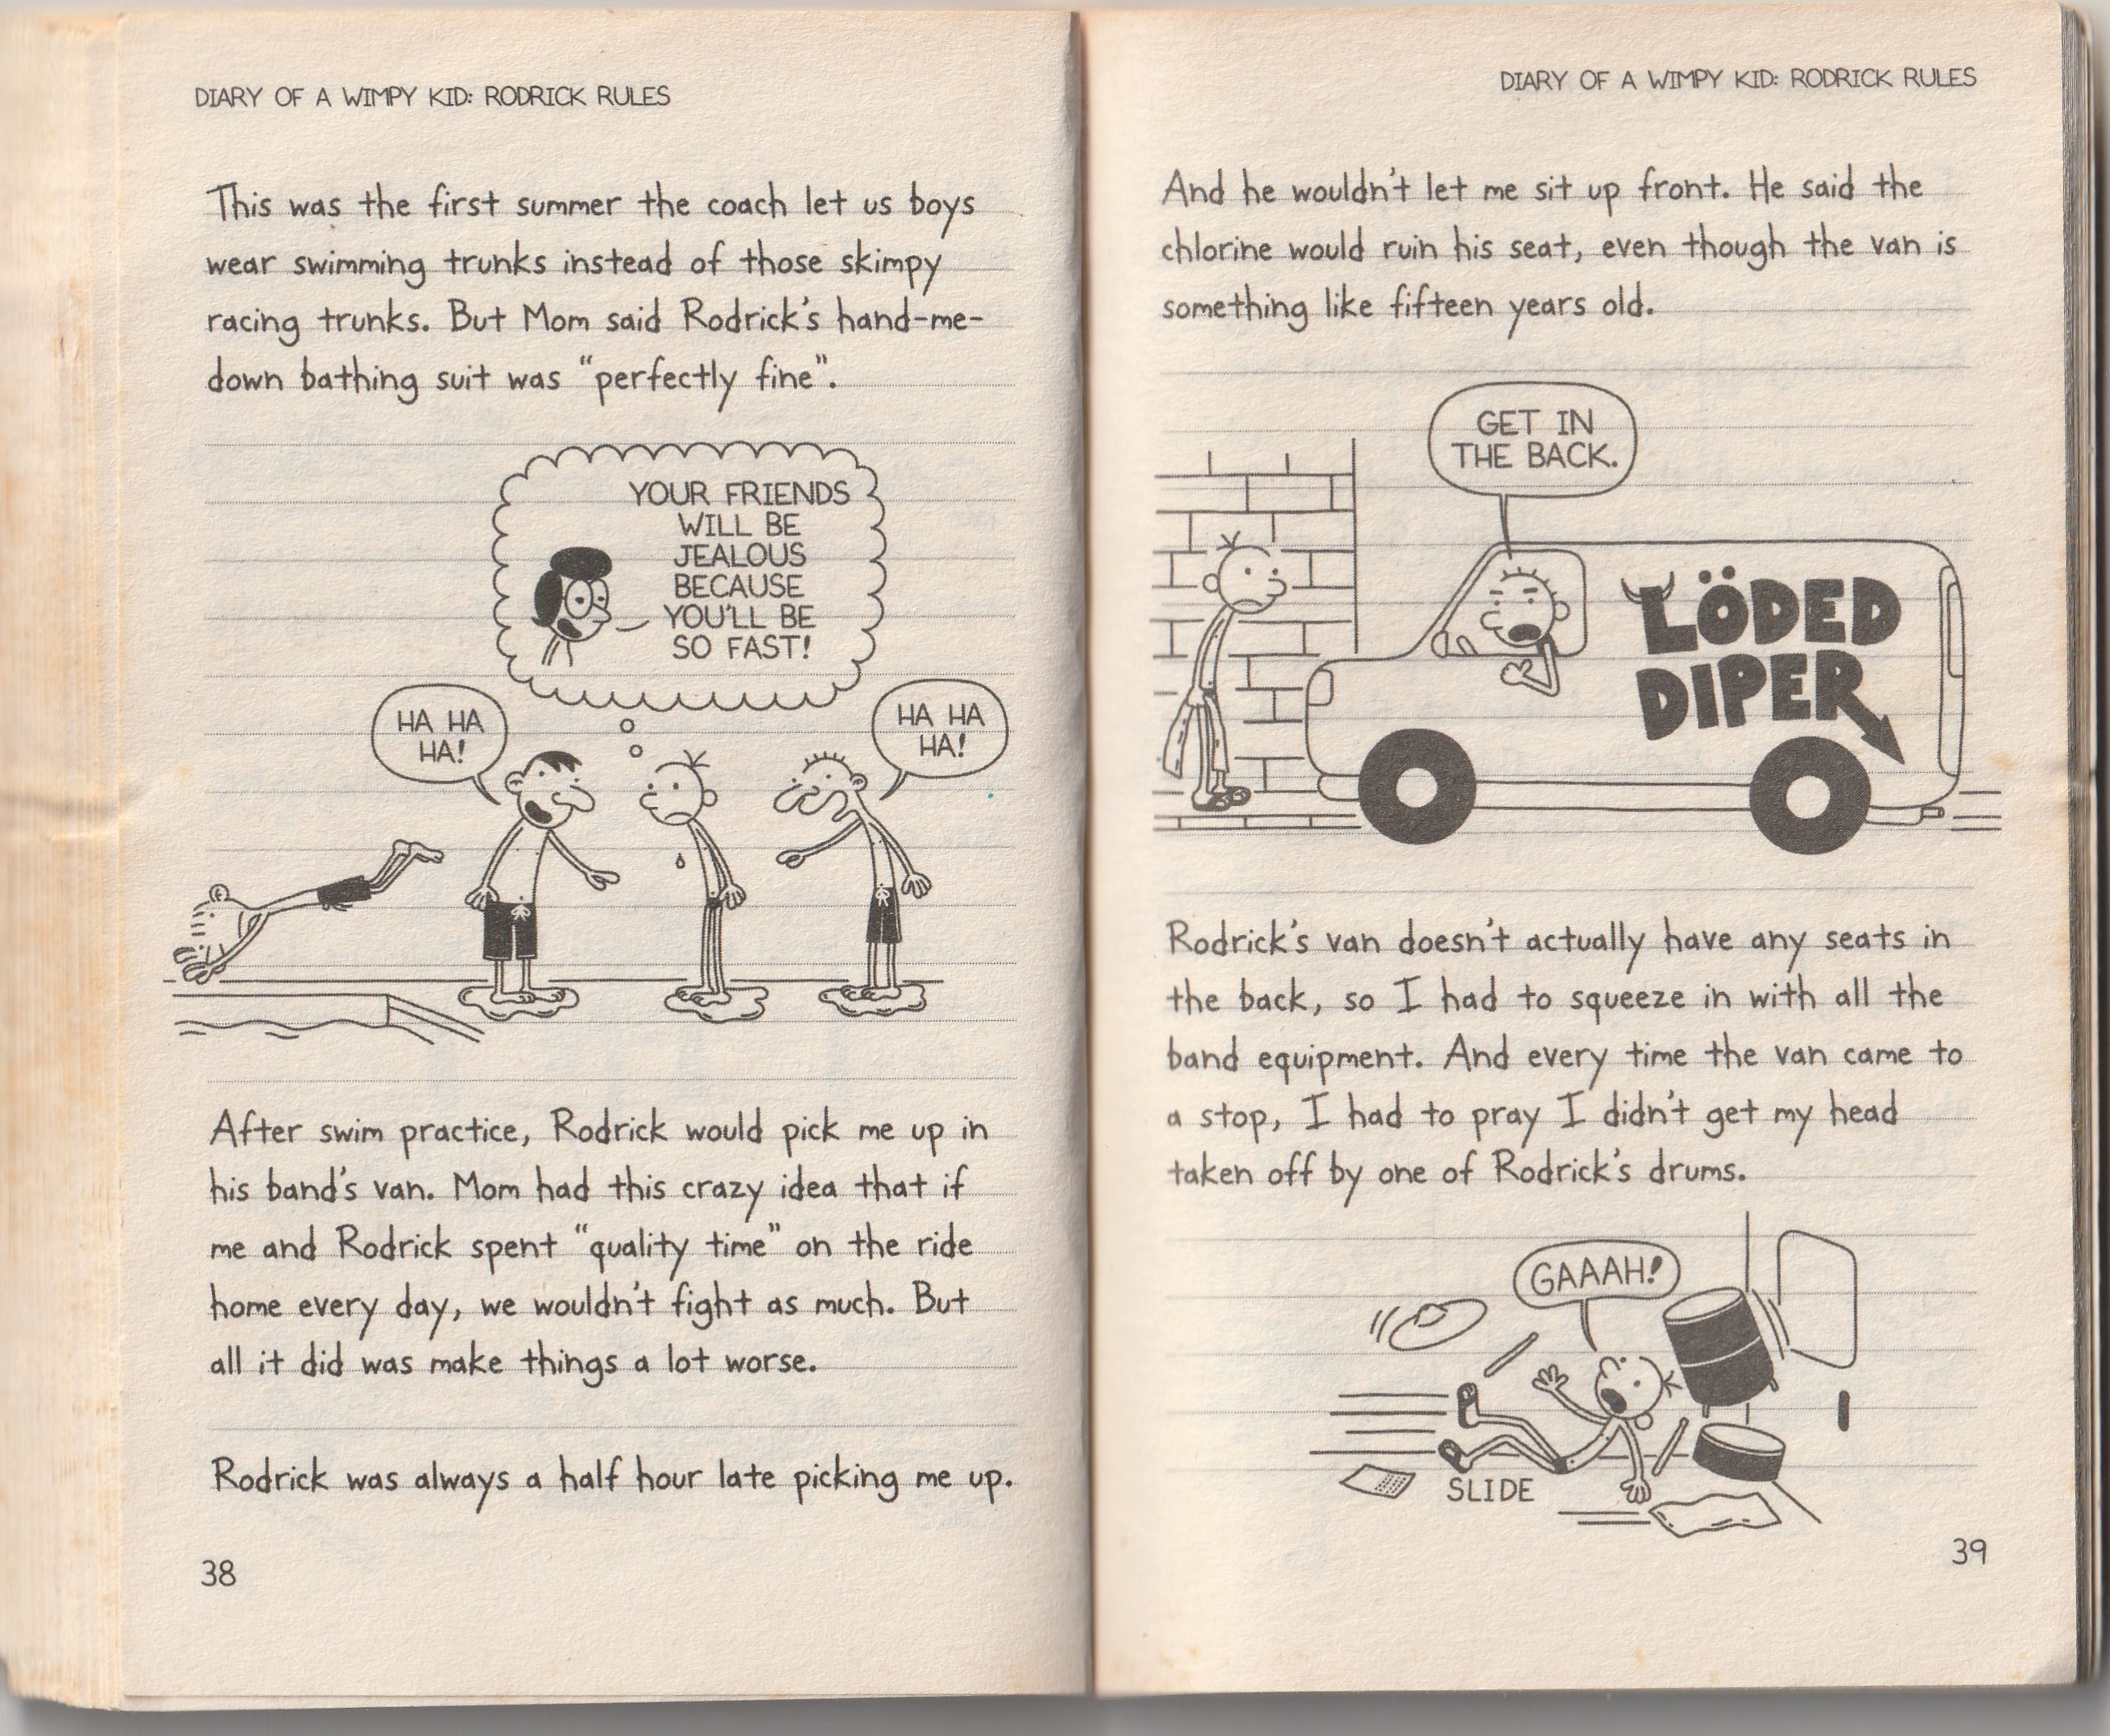 DIARY OF A WIMPY KID: RODRICK RULES
This was the first summer the coach let us boys
wear swimming trunks instead of those skimpy
racing trunks. But Mom said Rodrick's hand-me-
down bathing suit was “perfectly fine”.
YOUR FRIENDS
WILL BE
JEALOUS
BECAUSE
YOU'LL BE
SO FAST!
HA HA
HA!
HA HA
HA!
After swim practice, Rodrick would pick me up in
his band's van. Mom had this crazy idea that if
me and Rodrick spent “quality time” on the ride
home every day, we wouldn't fight as much. But
all it did was make things a lot worse.
Rodrick was always a half hour late picking me up.
38
DIARY OF A WIMPY KID: RODRICK RULES
And he wouldn't let me sit up front. He said the
chlorine would ruin his seat, even though the van is
something like fifteen years old.
GET IN
THE BACK.
LÖDED
DIPER
Rodrick's van doesn't actually have any seats in
the back, so I had to squeeze in with all the
band equipment. And every time the van came to
a stop, I had to pray I didn't get my head
taken off by one of Rodrick's drums.
GAAAH!
SLIDE
39